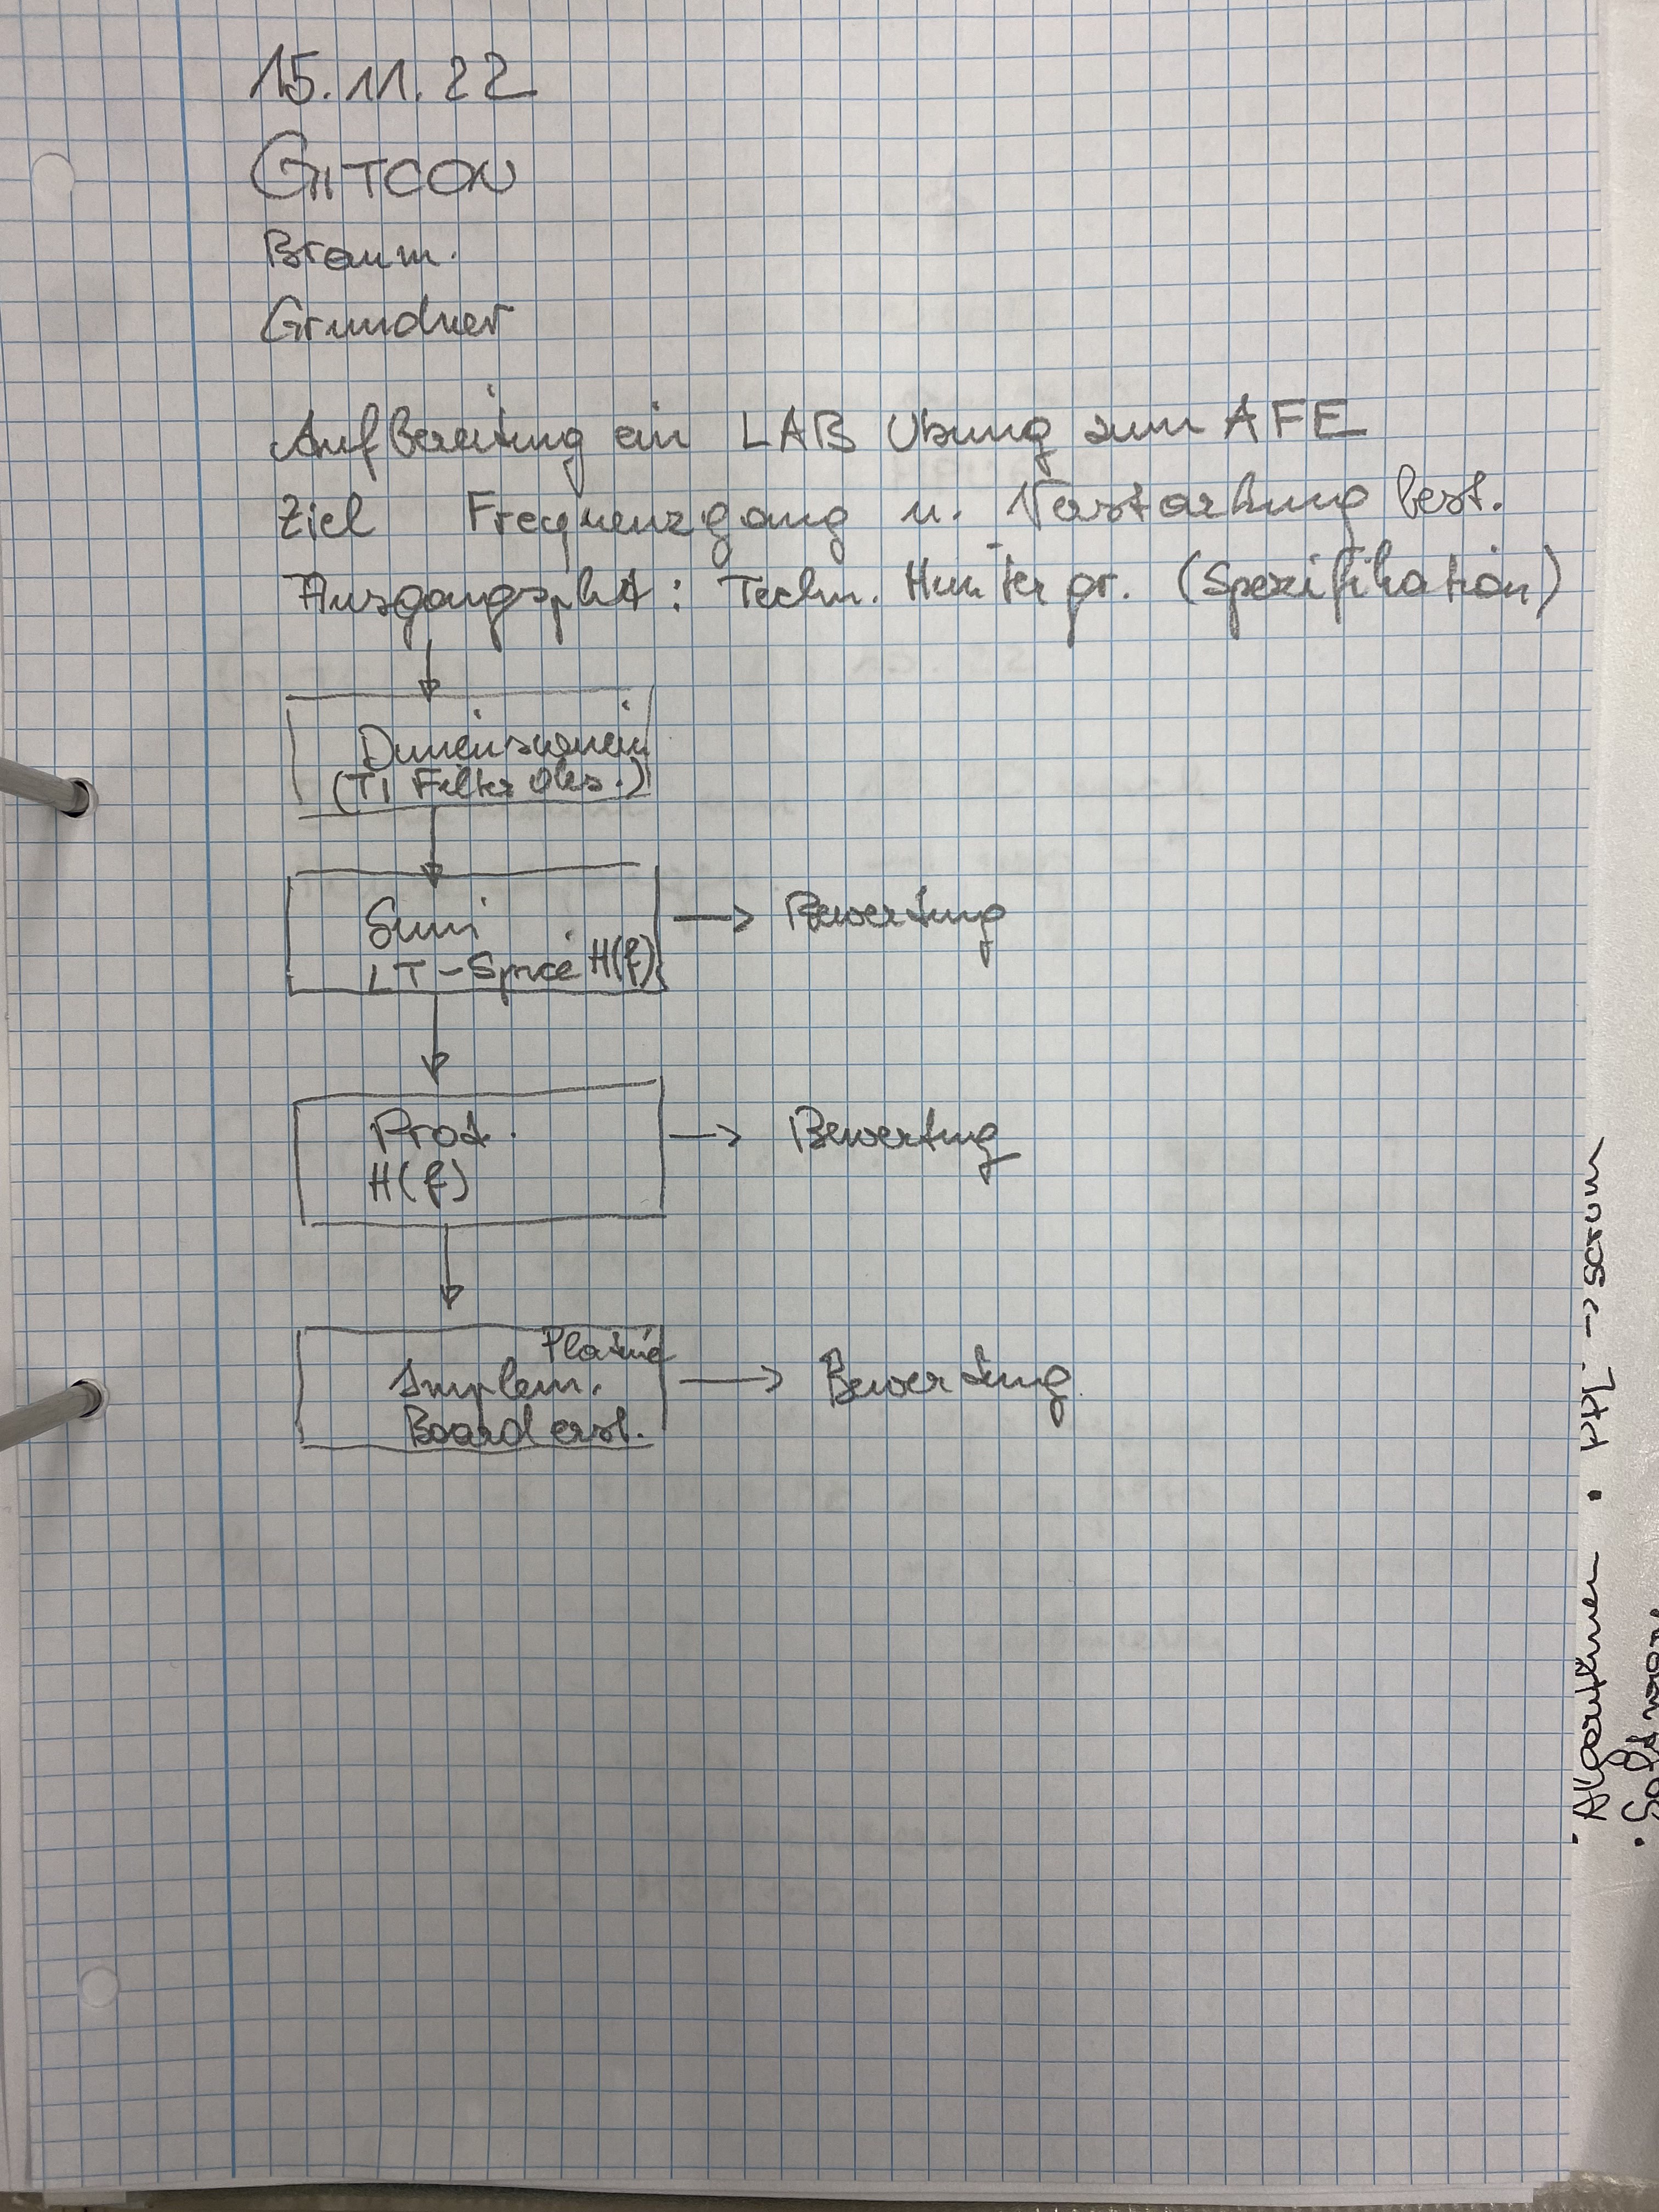 15.11.22
GITCON
Braum.
Grundner
Aufbereitung ein LAB Übung zum AFE
Ziel Frequenzgang u. Verstärkung best.
Ausgangspkt: Techn. Hintergr. (Spezifikation)
Dimensionein
(TI Filter Des.)
Simi
LT-Spice H(f)
→ Bewertung
Prot.
H(f)
→ Bewertung
Platine
Implem.
Board erst.
→ Bewertung
• Algorithmen • PPL → Scrum
• Software